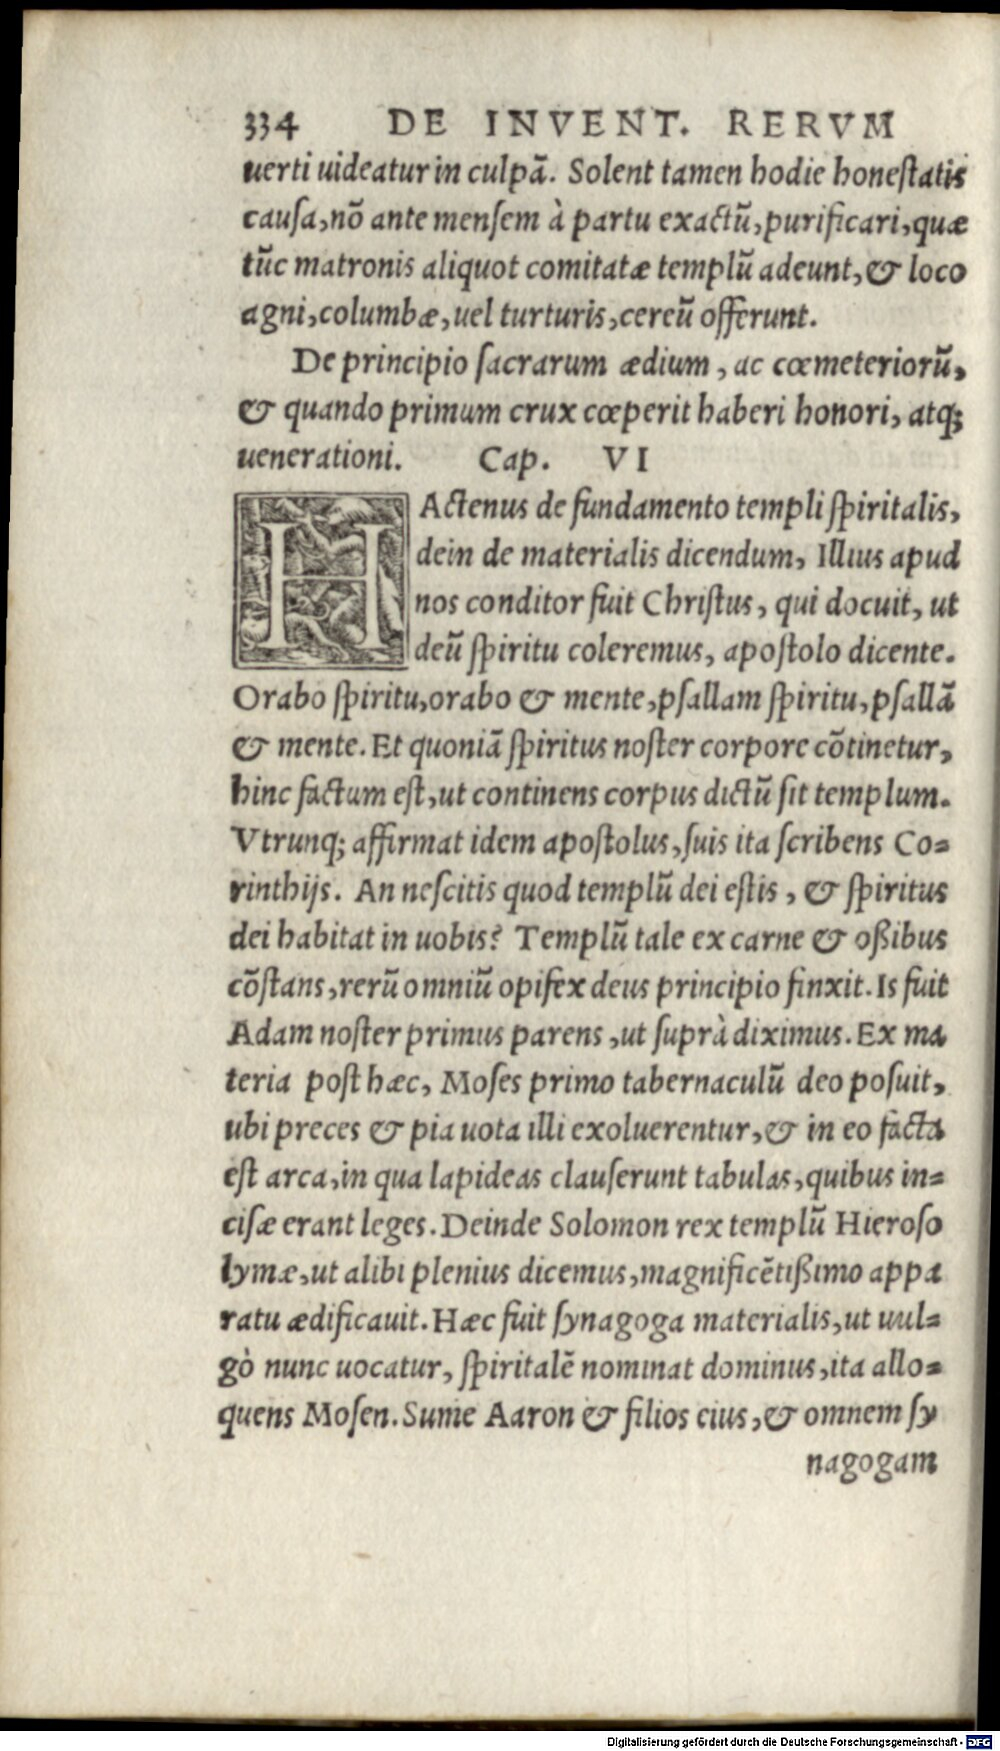 334 DE INVENT. RERVM
uerti uideatur in culpã. Solent tamen hodie honeſtatis
cauſa, nõ ante menſem à partu exactũ, purificari, quæ
tũc matronis aliquot comitatæ templũ adeunt, & loco
agni, columbæ, uel turturis, cereũ offerunt.
De principio ſacrarum ædium, ac cœmeteriorũ,
& quando primum crux cœperit haberi honori, atq;
uenerationi. Cap. VI
HActenus de fundamento templi ſpiritalis,
dein de materialis dicendum, Illius apud
nos conditor fuit Chriſtus, qui docuit, ut
deũ ſpiritu coleremus, apoſtolo dicente.
Orabo ſpiritu, orabo & mente, pſallam ſpiritu, pſallã
& mente. Et quoniã ſpiritus noſter corpore cõtinetur,
hinc factum eſt, ut continens corpus dictũ ſit templum.
Vtrunq; affirmat idem apoſtolus, ſuis ita ſcribens Co=
rinthijs. An neſcitis quod templũ dei eſtis, & ſpiritus
dei habitat in uobis? Templũ tale ex carne & oßibus
cõſtans, rerũ omniũ opifex deus principio finxit. Is fuit
Adam noſter primus parens, ut ſuprà diximus. Ex ma
teria poſt hæc, Moſes primo tabernaculũ deo poſuit,
ubi preces & pia uota illi exoluerentur, & in eo facta
eſt arca, in qua lapideas clauſerunt tabulas, quibus in=
ciſæ erant leges. Deinde Solomon rex templũ Hieroſo
lymæ, ut alibi plenius dicemus, magnificẽtißimo appa
ratu ædificauit. Hæc fuit ſynagoga materialis, ut uul=
gò nunc uocatur, ſpiritalẽ nominat dominus, ita allo=
quens Moſen. Sume Aaron & filios eius, & omnem ſy
nagogam
Digitalisierung gefördert durch die Deutsche Forschungsgemeinschaft - DFG